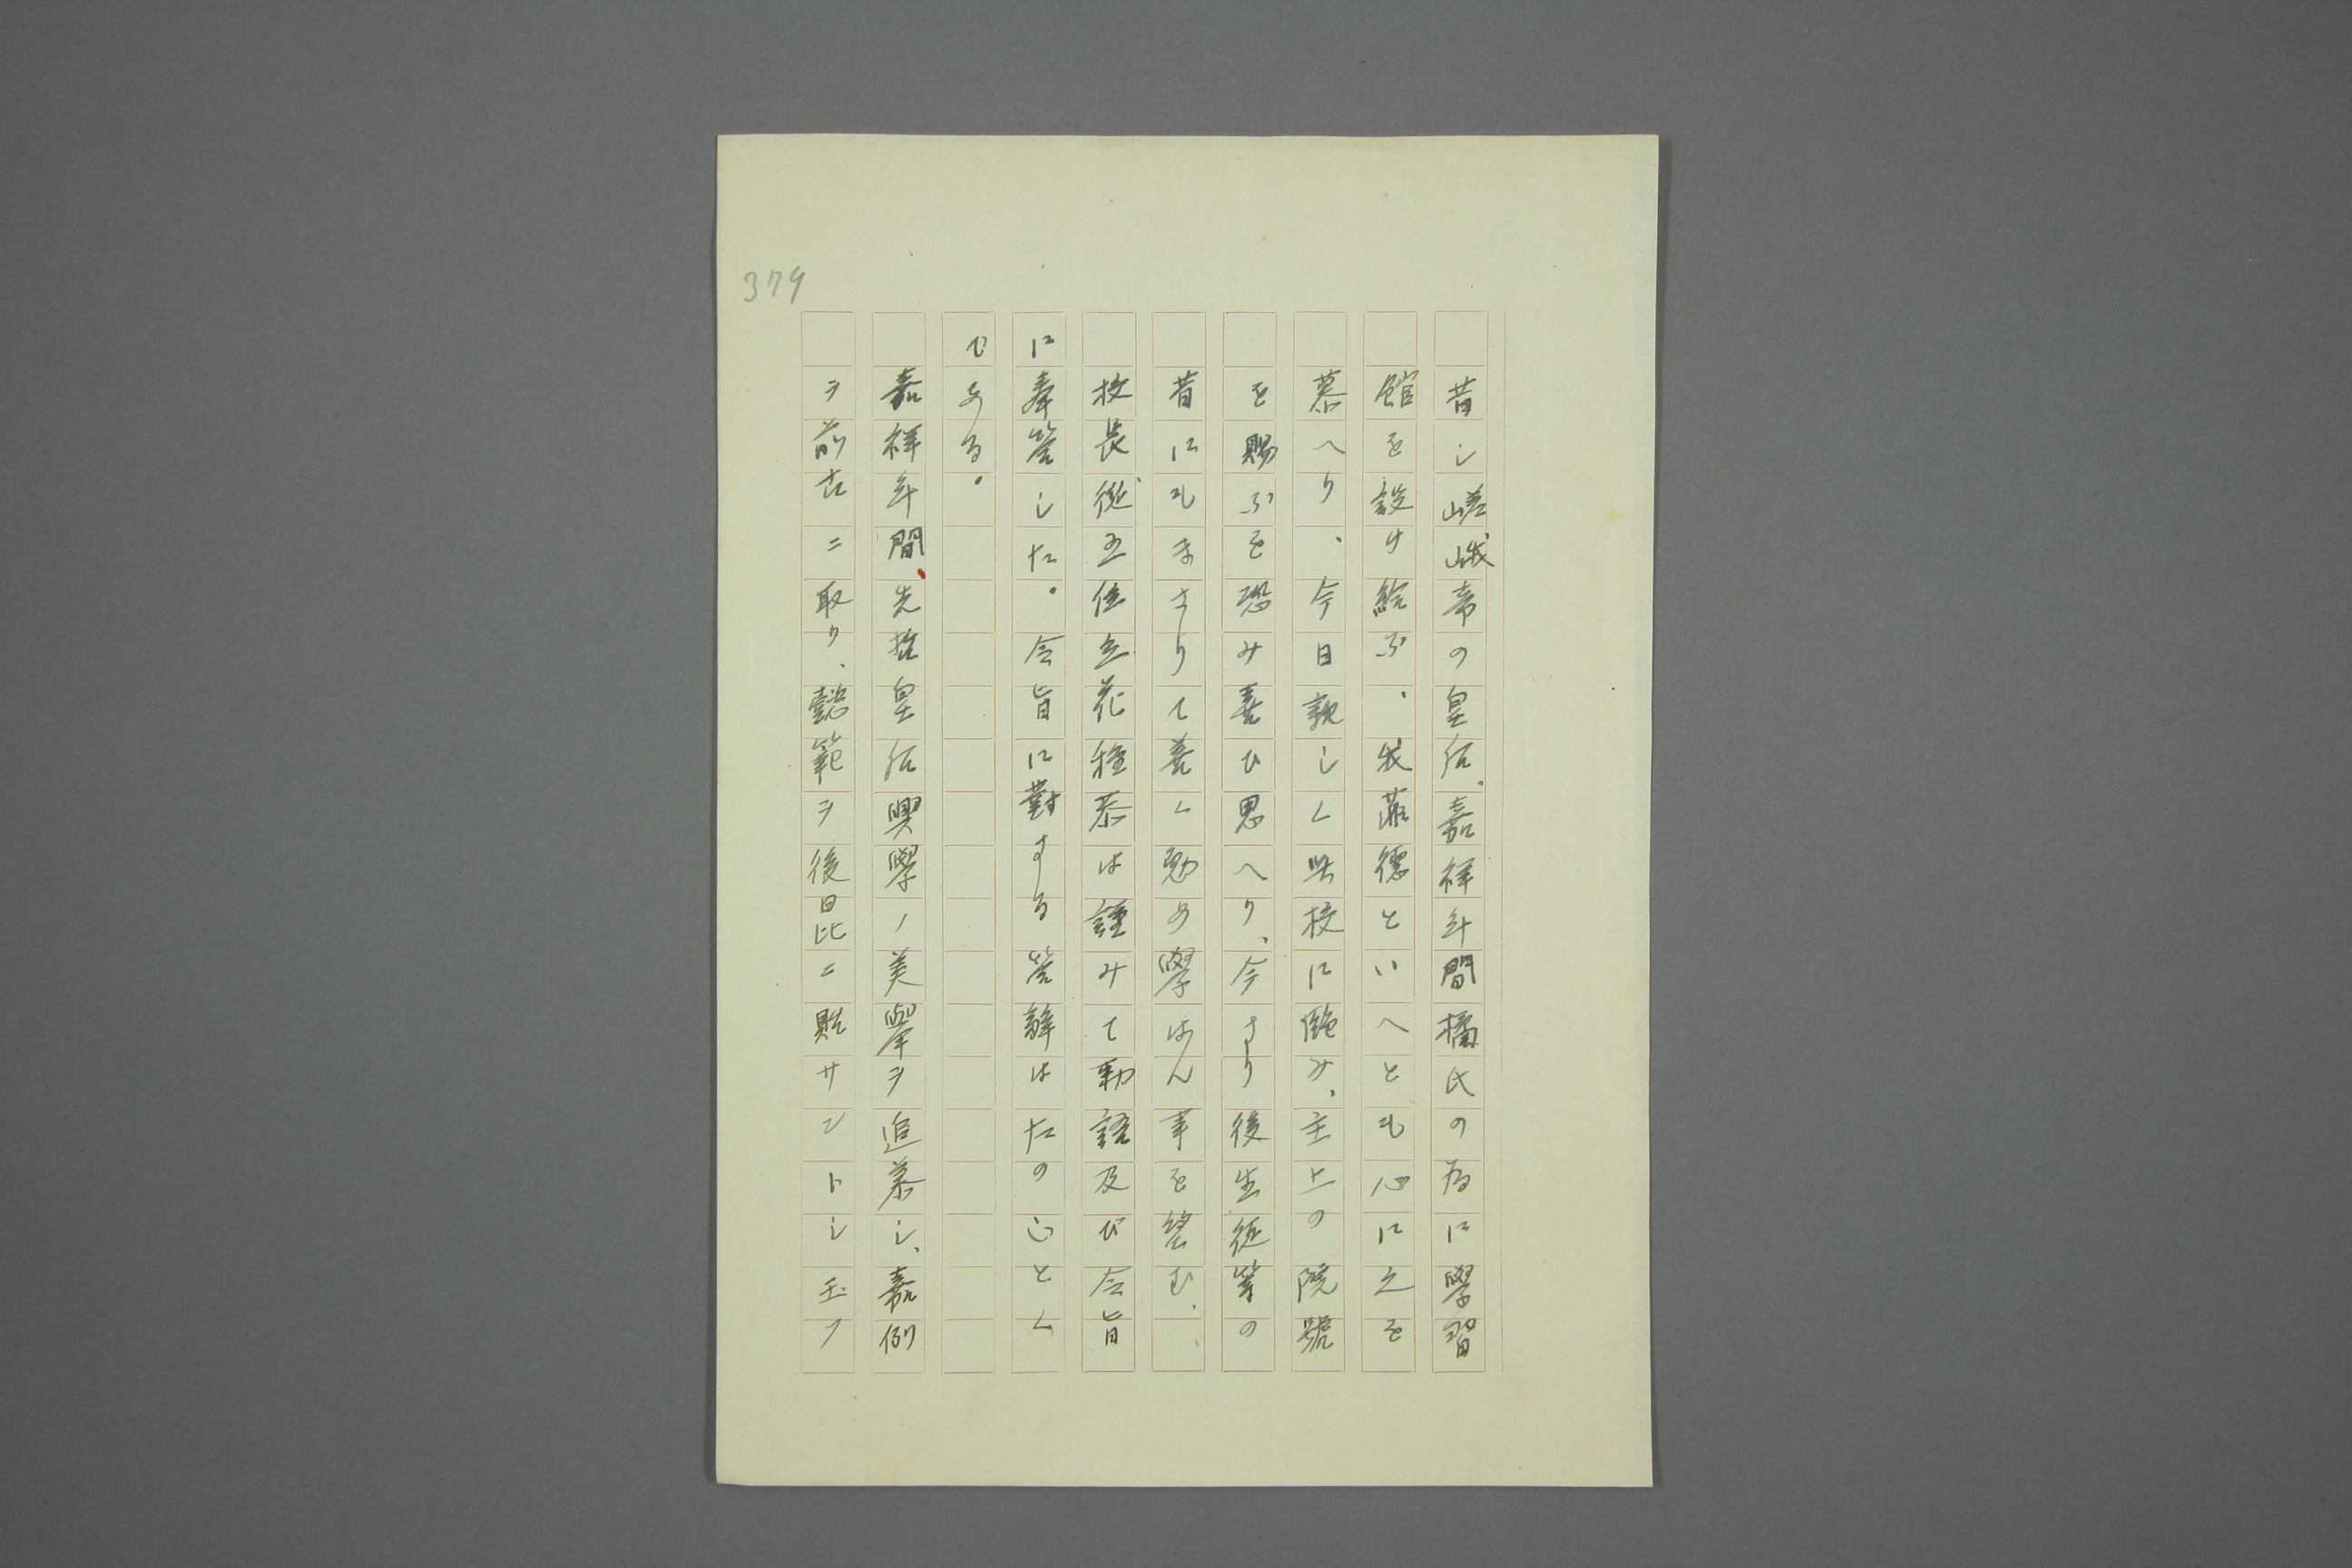 379
昔し嵯峨帝の皇后、嘉祥年間橘氏の為に學習
館を設け給ふ、我菲徳といへとも心に之を
慕へり、今日親しく此校に臨み、主上の院號
を賜ふを恐み喜ひ思へり、今より後生徒等の
昔にもまさりて善く勉め學はん事を望む、
校長、從五位立花種恭は謹みて勅語及び令旨
に奉答した。令旨に對する答辭は左の如く
である。
嘉祥年間、先哲皇后興學ノ美擧ヲ追慕シ、嘉例
ヲ前古ニ取リ、懿範ヲ後昆ニ貽サントシ玉フ